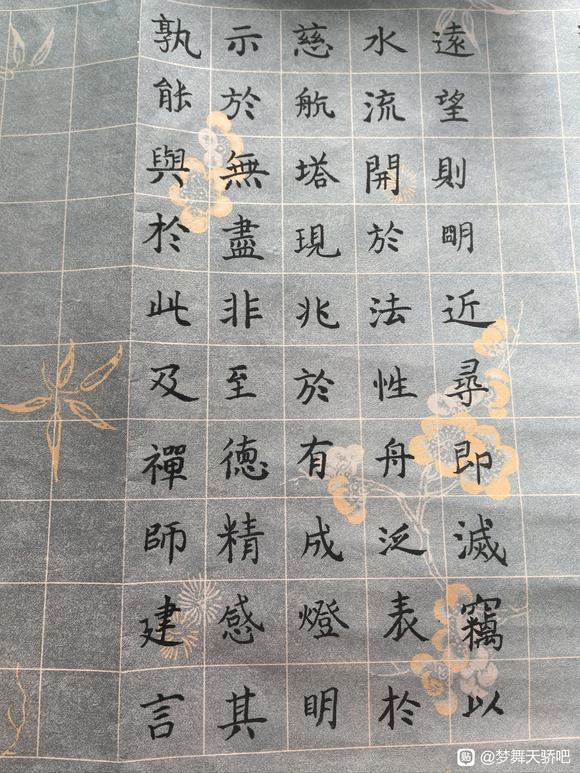 遠望則明近尋即滅竊以
水流開於法性舟泛表於
慈航塔現兆於有成燈明
示於無盡非至德精感其
孰能與於此及禪師建言
@梦舞天骄吧